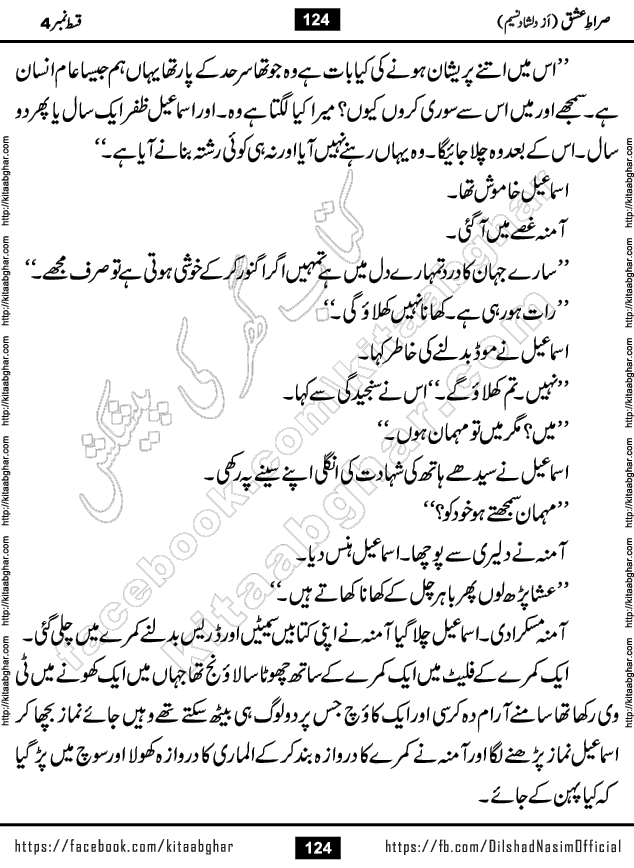 صراطِ عشق (از دلشاد نسیم) 124 قسط نمبر 4
’’اس میں اتنے پریشان ہونے کی کیا بات ہے وہ جو تھا سرحد کے پار تھا یہاں ہم جیسا عام انسان
ہے۔ سمجھے اور میں اس سے سوری کروں کیوں؟ میرا کیا لگتا ہے وہ۔ اور اسماعیل ظفر ایک سال یا پھر دو
سال۔ اس کے بعد وہ چلا جائیگا۔ وہ یہاں رہنے نہیں آیا اور نہ ہی کوئی رشتہ بنانے آیا ہے۔‘‘
اسماعیل خاموش تھا۔
آمنہ غصے میں آ گئی۔
’’سارے جہان کا درد تمہارے دل میں ہے تمہیں اگر اگنور کر کے خوشی ہوتی ہے تو صرف مجھے۔‘‘
’’رات ہو رہی ہے۔ کھانا نہیں کھلاؤ گی۔‘‘
اسماعیل نے موڈ بدلنے کی خاطر کہا۔
’’نہیں۔ تم کھلاؤ گے۔‘‘ اس نے سنجیدگی سے کہا۔
’’میں؟ مگر میں تو مہمان ہوں۔‘‘
اسماعیل نے سیدھے ہاتھ کی شہادت کی انگلی اپنے سینے پہ رکھی۔
’’مہمان سمجھتے ہو خود کو؟‘‘
آمنہ نے دلیری سے پوچھا۔ اسماعیل ہنس دیا۔
’’عشا پڑھ لوں پھر باہر چل کے کھانا کھاتے ہیں۔‘‘
آمنہ مسکرا دی۔ اسماعیل چلا گیا آمنہ نے اپنی کتابیں سمیٹیں اور ڈریس بدلنے کمرے میں چلی گئی۔
ایک کمرے کے فلیٹ میں ایک کمرے کے ساتھ چھوٹا سا لاؤنج تھا جہاں میں ایک کھونے میں ٹی
وی رکھا تھا سامنے آرام دہ کرسی اور ایک کاؤچ جس پر دو لوگ ہی بیٹھ سکتے تھے وہیں جائے نماز بچھا کر
اسماعیل نماز پڑھنے لگا اور آمنہ نے کمرے کا دروازہ بند کر کے الماری کا دروازہ کھولا اور سوچ میں پڑ گیا
کہ کیا پہن کے جائے۔
کتاب گھر کی پیشکش
facebook.com/kitaabghar
kitaabghar.com
http://kitaabghar.com http://kitaabghar.com http://kitaabghar.com http://kitaabghar.com http://kitaabghar.com http://kitaabghar.com
http://kitaabghar.com http://kitaabghar.com http://kitaabghar.com http://kitaabghar.com http://kitaabghar.com http://kitaabghar.com
https://facebook.com/kitaabghar 124 https://fb.com/DilshadNasimOfficial